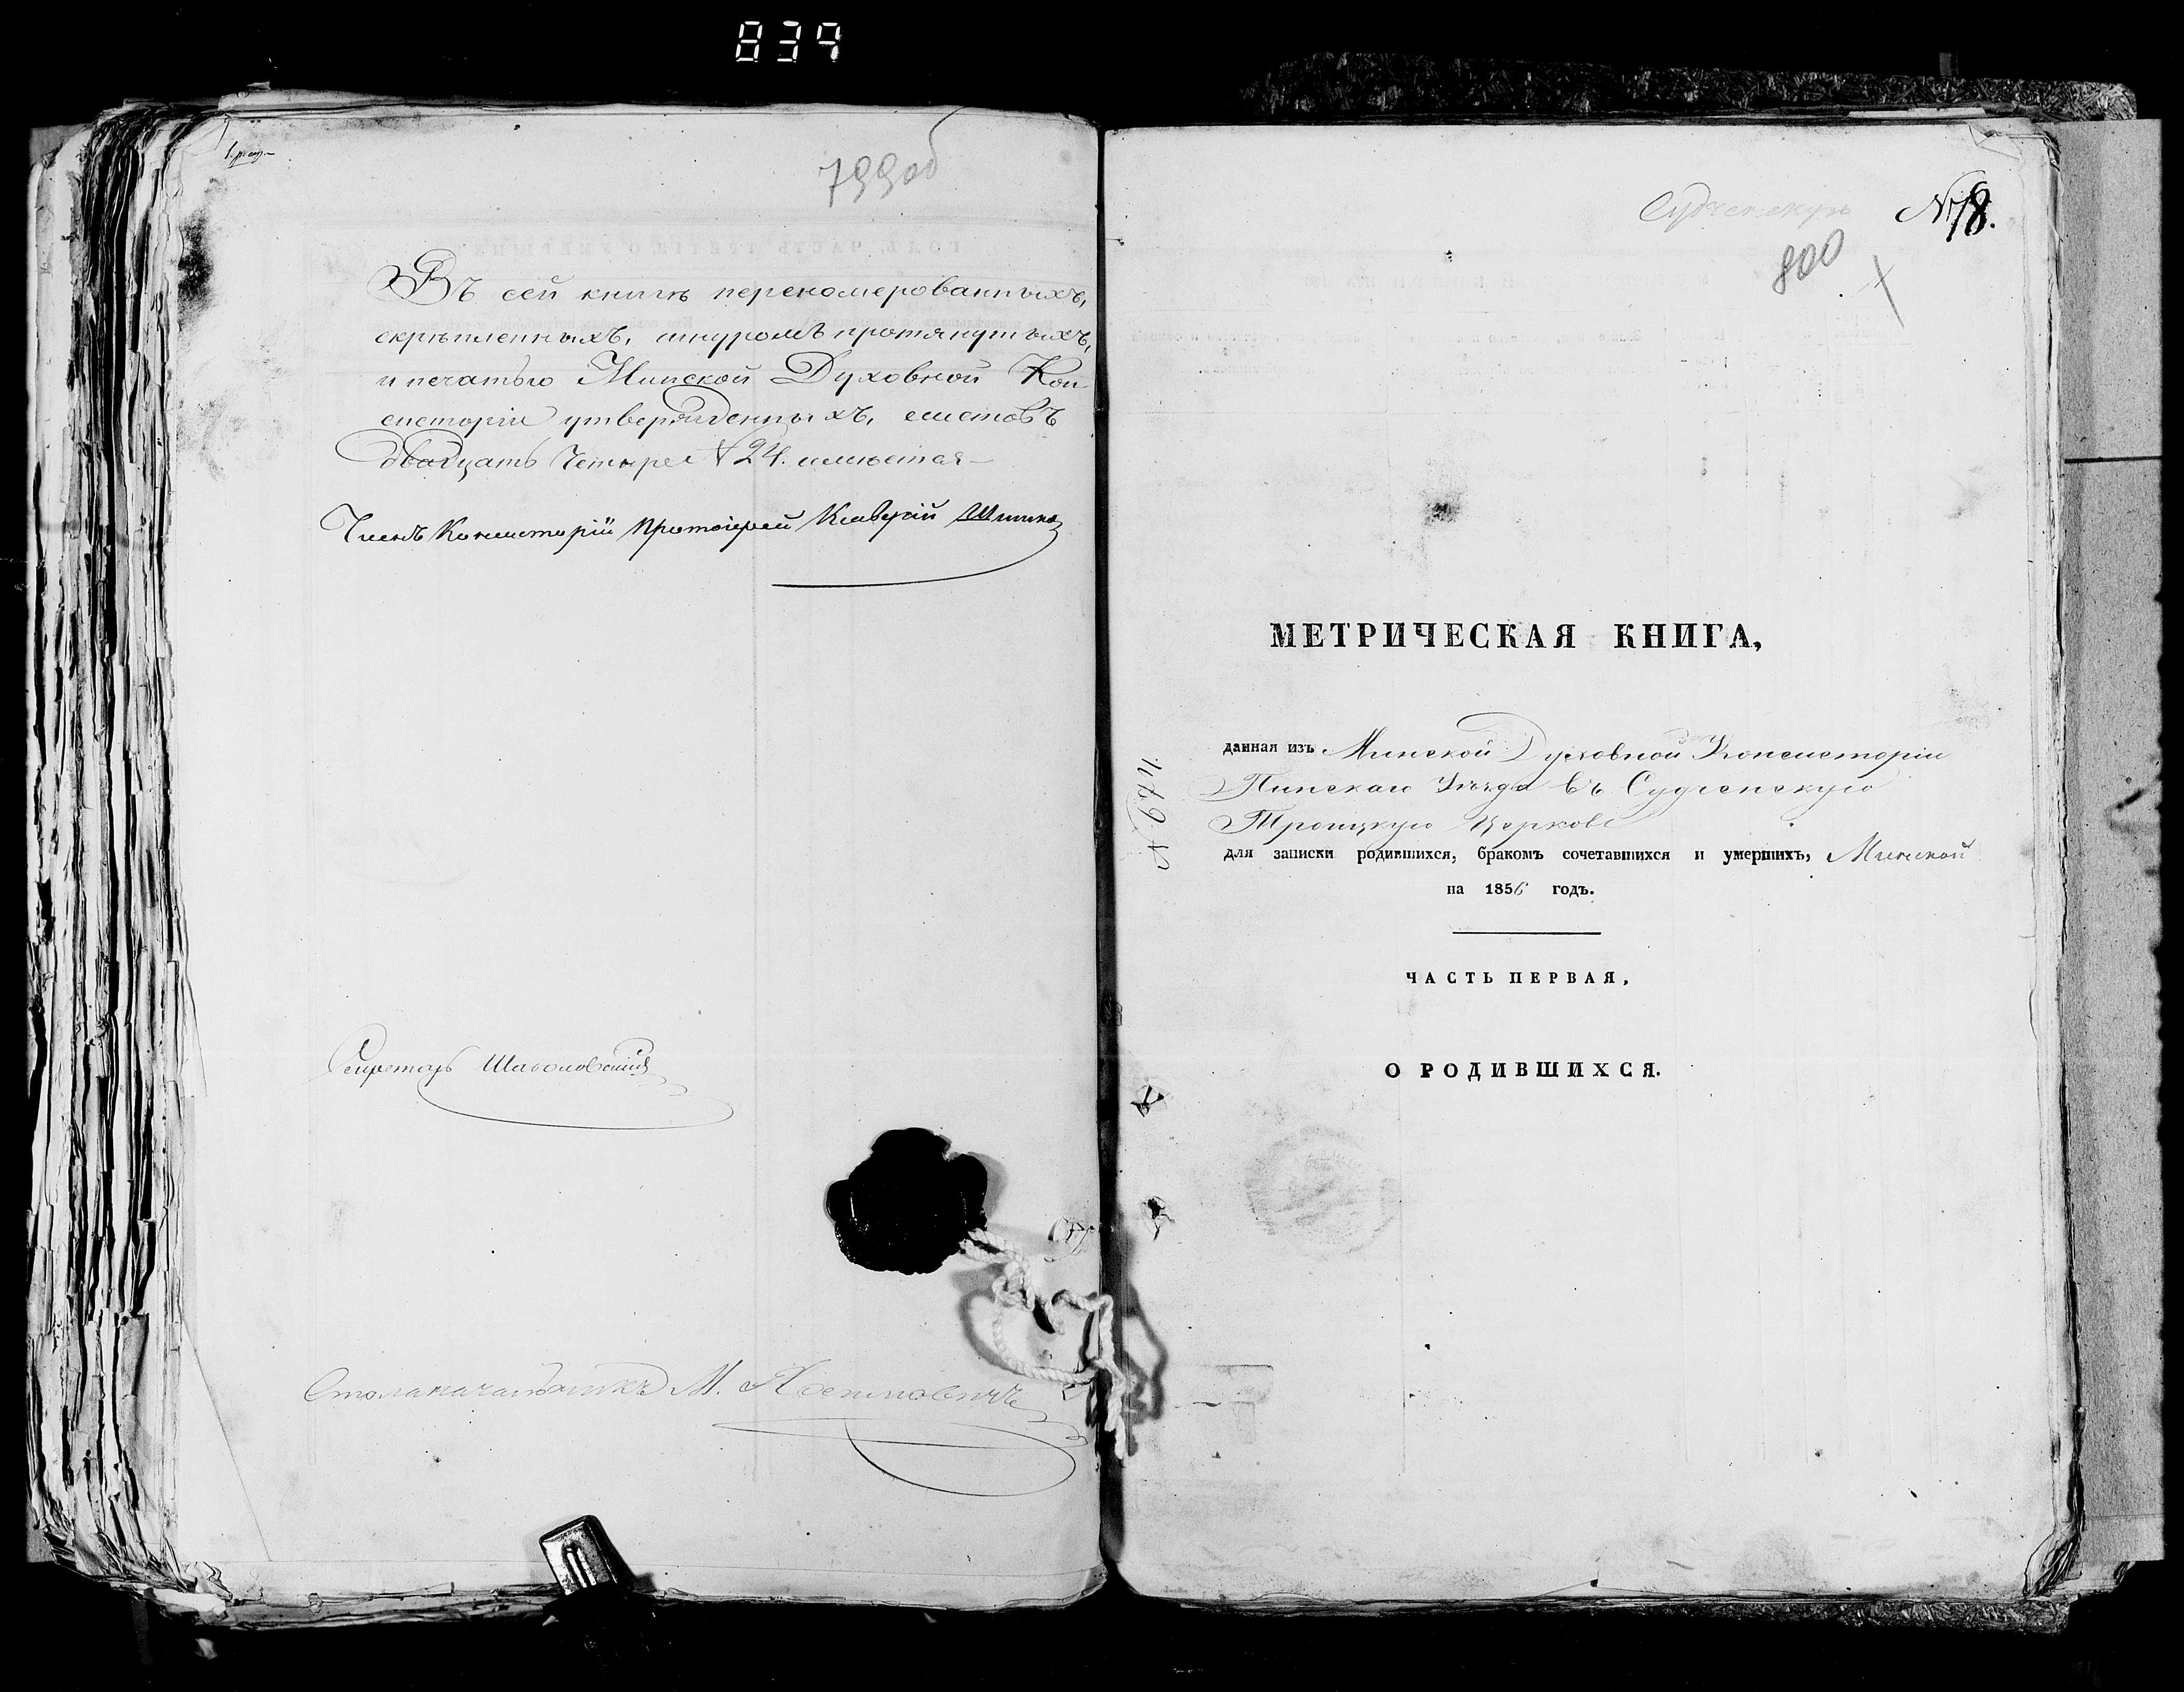 839
799об
Въ сей книгѣ переномерованныхъ,
скрѣпленныхъ, шнуромъ протянутыхъ,
и печатью Минской Духовной Кон
систоріи утвержденныхъ, листовъ
двадцать четыре 24. имѣется
Членъ Консисторіи Протоіерей
Секретарь
Столоначальникъ М.
Судченскую № 78.
800
МЕТРИЧЕСКАЯ КНИГА,
данная изъ Минской Духовной Консисторіи
Пинскаго Уѣзда въ Судченскую
Троицкую Церковь
для записки родившихся, бракомъ сочетавшихся и умершихъ, Минской
на 1856 годъ.
ЧАСТЬ ПЕРВАЯ,
О РОДИВШИХСЯ.